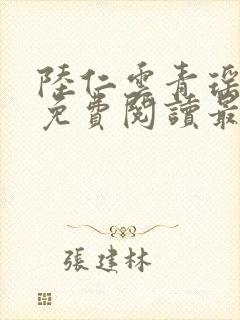 陸仁雲青瑶
免費閱讀最
張建林